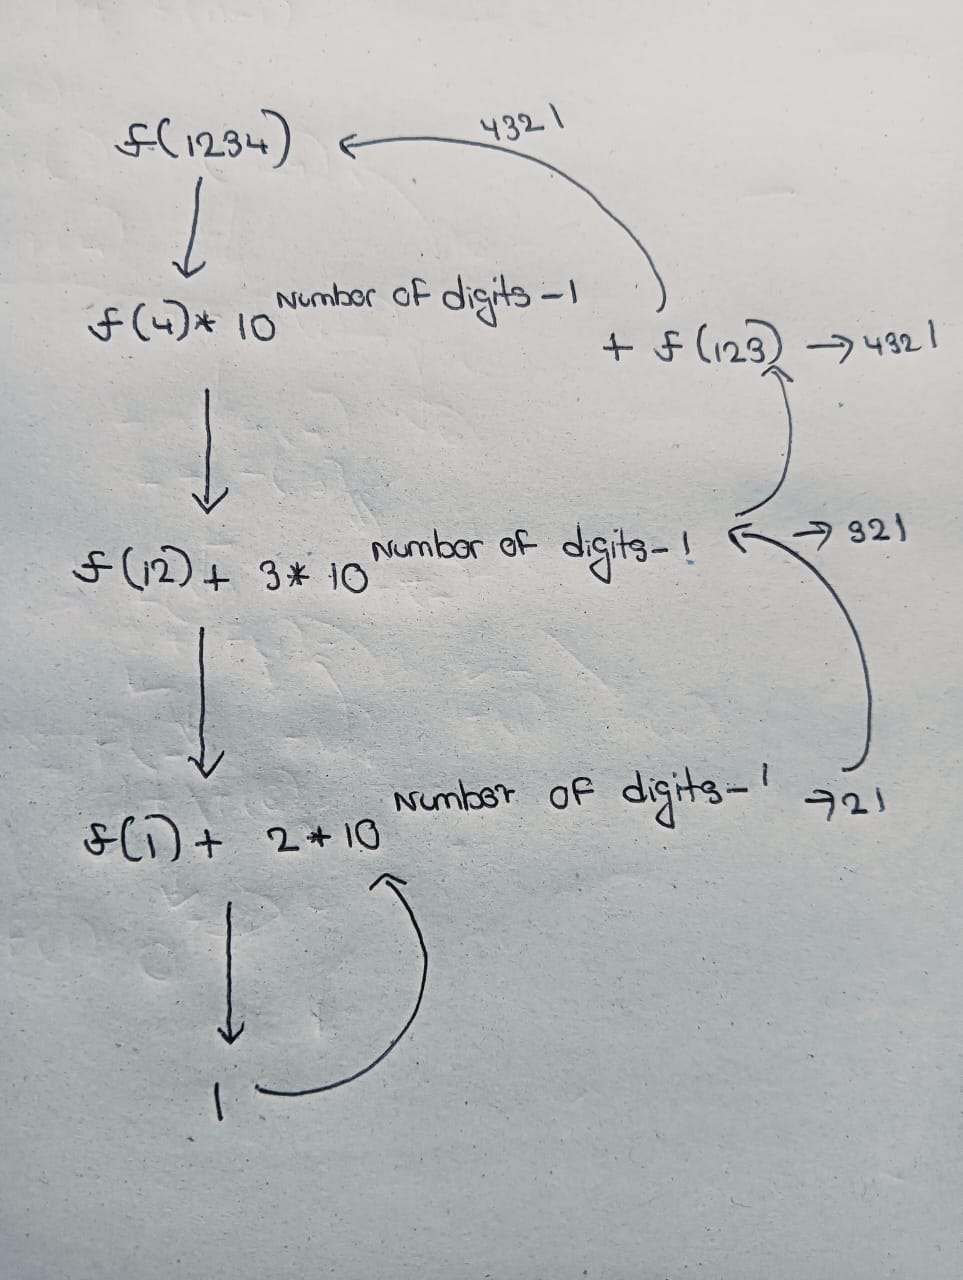 4321
f(1234)
f(4)* 10 Number of digits -1
+ f(123) → 4321
f(12) + 3* 10 Number of digits-1 → 321
f(1) + 2*10 Number of digits-1 → 21
1